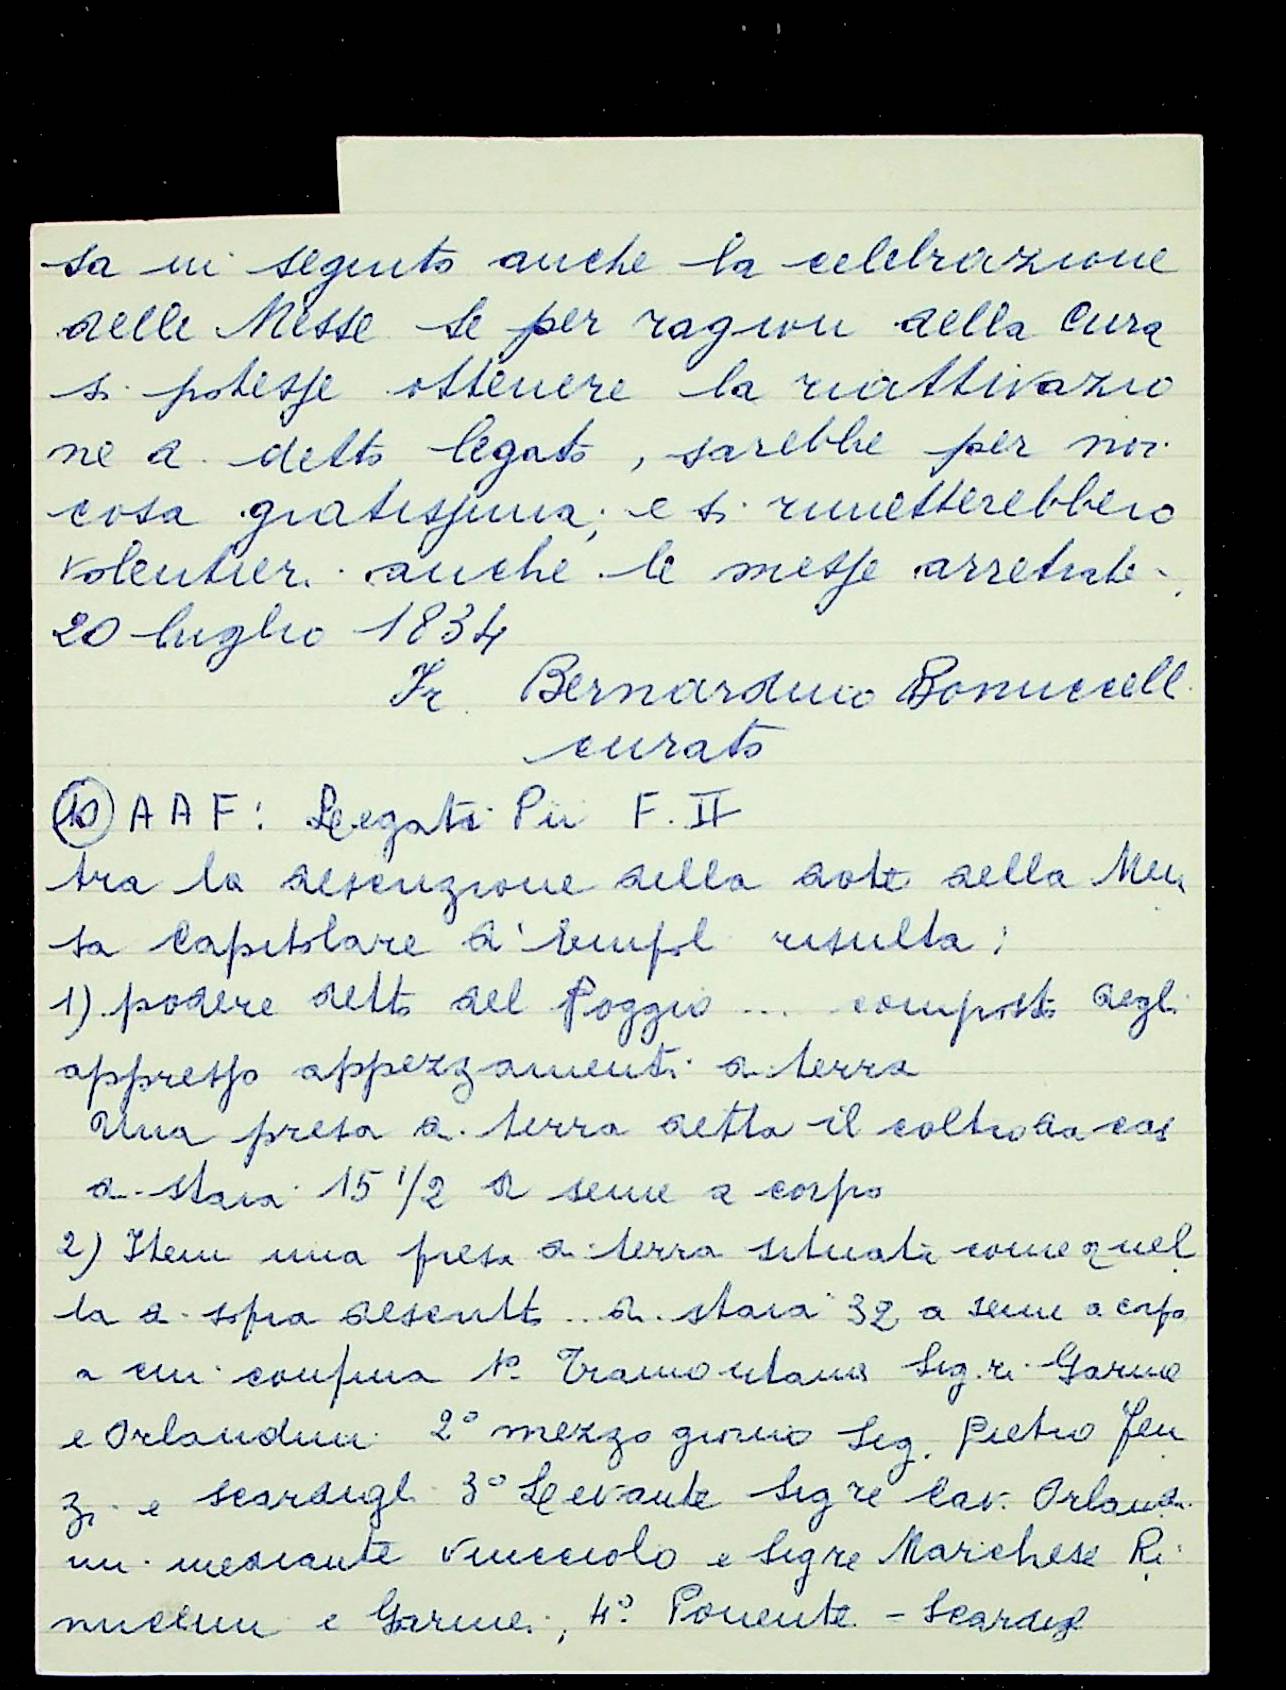 sa in seguito anche la celebrazione
delle Messe se per ragion della Cura
si potesse ottenere la riattivazio
ne di detto legato, sarebbe per noi
cosa gratissima; e si rimetterebbero
volentieri anche le messe arretrate.
20 luglio 1834
Fr Bernardino Bonuccelli
curato
10 A A F: Legati Pii F. II
tra la descrizione della dote della Men
sa Capitolare di Empoli risulta:
1) podere detto del Poggio ... composto degli
appresso appezzamenti di terra
Una presa di terra detta il coltro da cas
di staia 15 1/2 a seme a corpo
2) Item una presa di terra situati come quel
la di sopra descritto .. di staia 32 a seme a corpo
a cui confina 1º Tramontana Sig.ri
e Orlandini 2º mezzo giorno Sig. Pietro Fen
zi e Scardigli 3º Levante Sigre Cav. Orlandi
ni mediante viucciolo e Sigre Marchese Ri
nuccini e , 4º Ponente - Scardigli